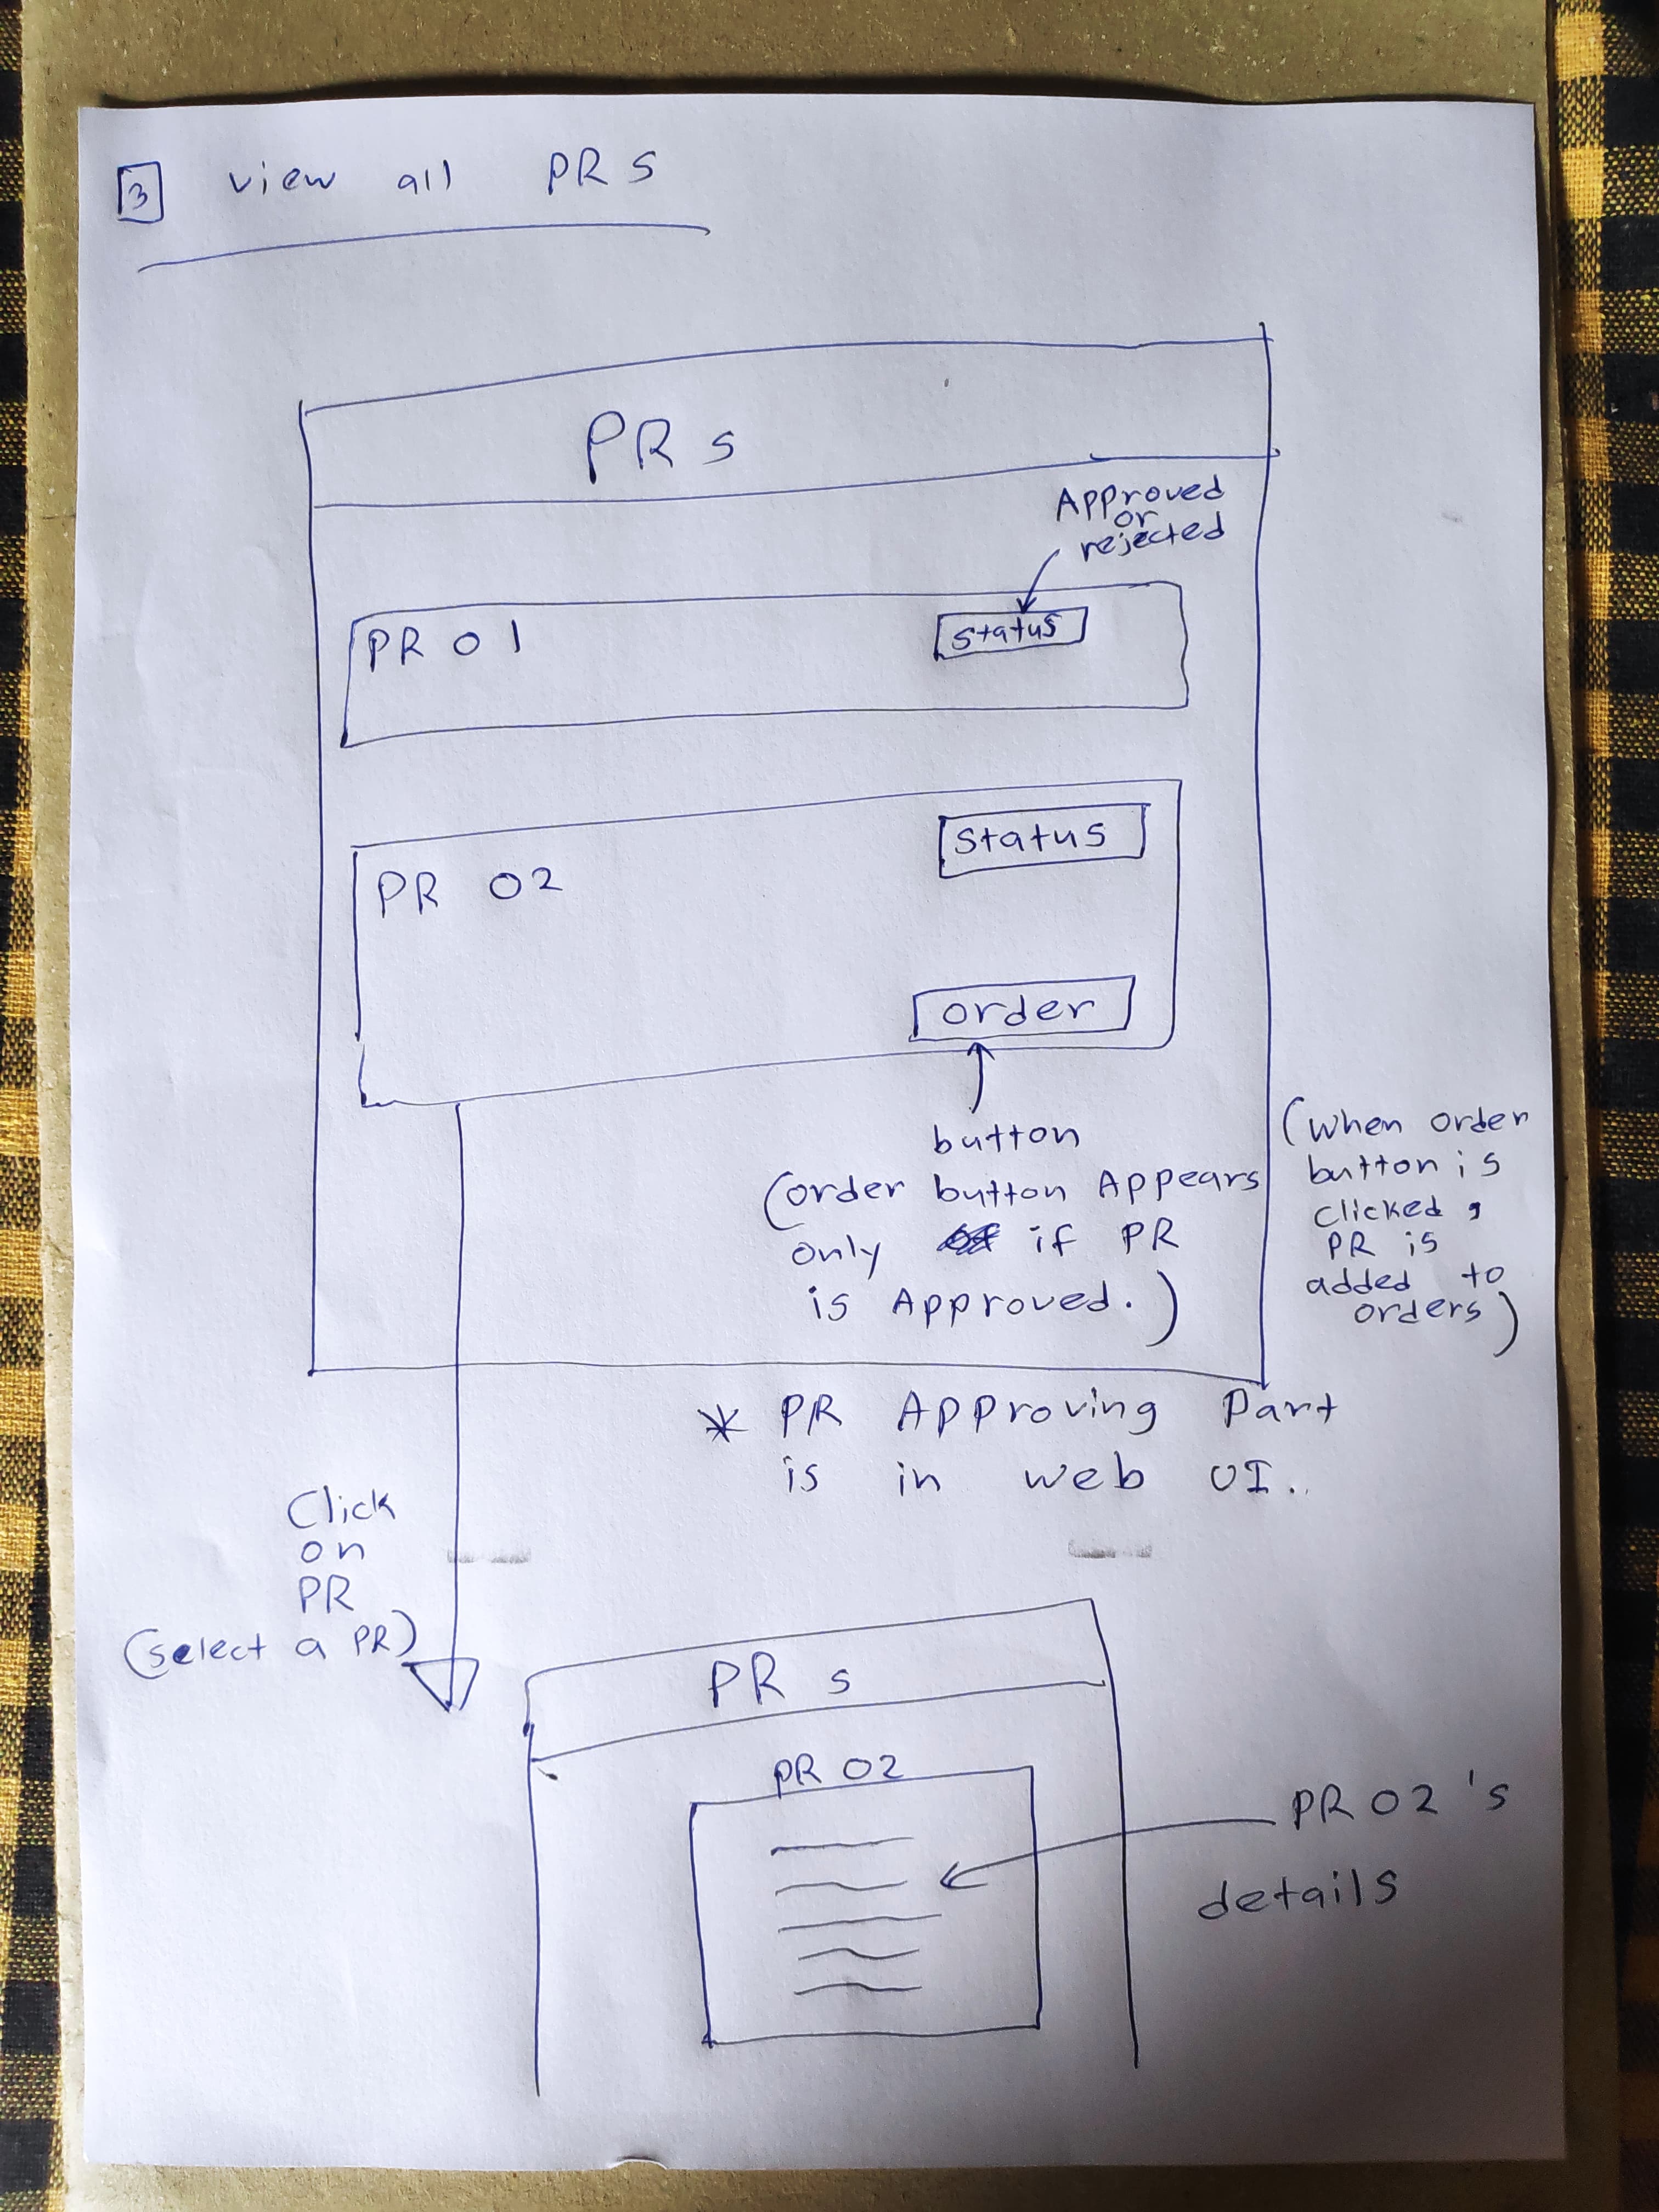 3 view all PRs
PRs
Approved
or
rejected
PR 01
status
status
PR 02
order
button
(order button Appears
only if PR
is Approved.)
(when order
button is
clicked,
PR is
added to
orders)
* PR Approving Part
is in web UI.
Click
on
PR
(select a PR)
PR s
PR 02
PR 02's
details